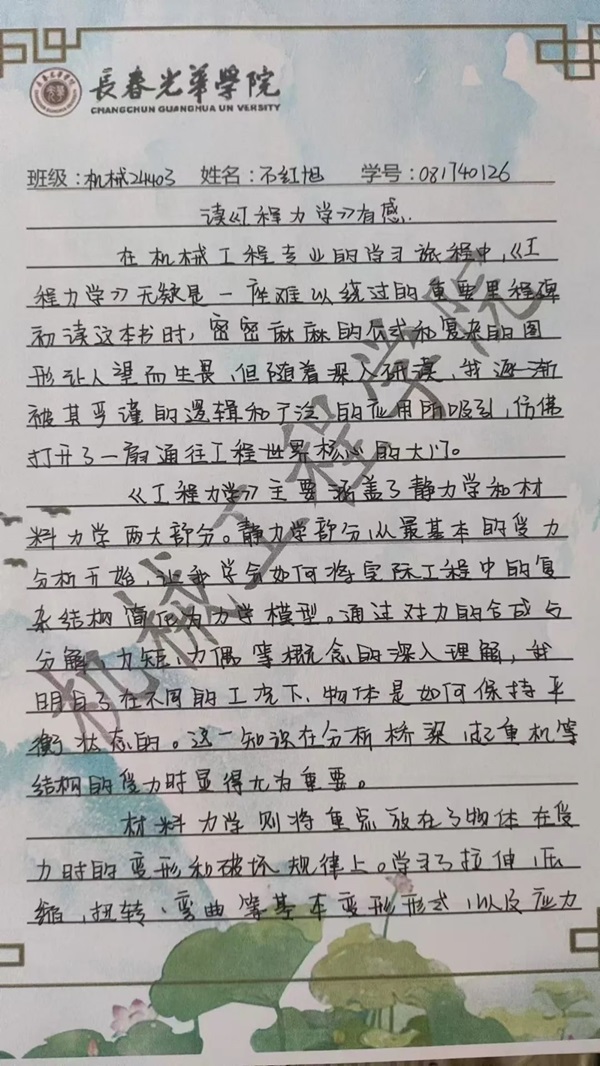 長春光華學院
CHANGCHUN GUANGHUA UN VERSITY
班级：机械24403 姓名：石红旭 学号：081740126
读《工程力学》有感.
在机械工程专业的学习旅程中，《工
程力学》无疑是一座难以绕过的重要里程碑
初读这本书时，密密麻麻的公式和复杂的图
形让人望而生畏，但随着深入研读，我逐渐
被其严谨的逻辑和广泛的应用所吸引，仿佛
打开了一扇通往工程世界核心的大门。
《工程力学》主要涵盖了静力学和材
料力学两大部分。静力学部分，从最基本的受力
分析开始，让我学会如何将实际工程中的复
杂结构简化为力学模型。通过对力的合成与
分解、力矩、力偶等概念的深入理解，我
明白了在不同的工况下、物体是如何保持平
衡状态的。这一知识在分析桥梁、起重机等
结构的受力时显得尤为重要。
材料力学则将重点放在了物体在受
力时的变形和破坏规律上。学习了拉伸、压
缩、扭转、弯曲等基本变形形式，以及应力
机械工程学院